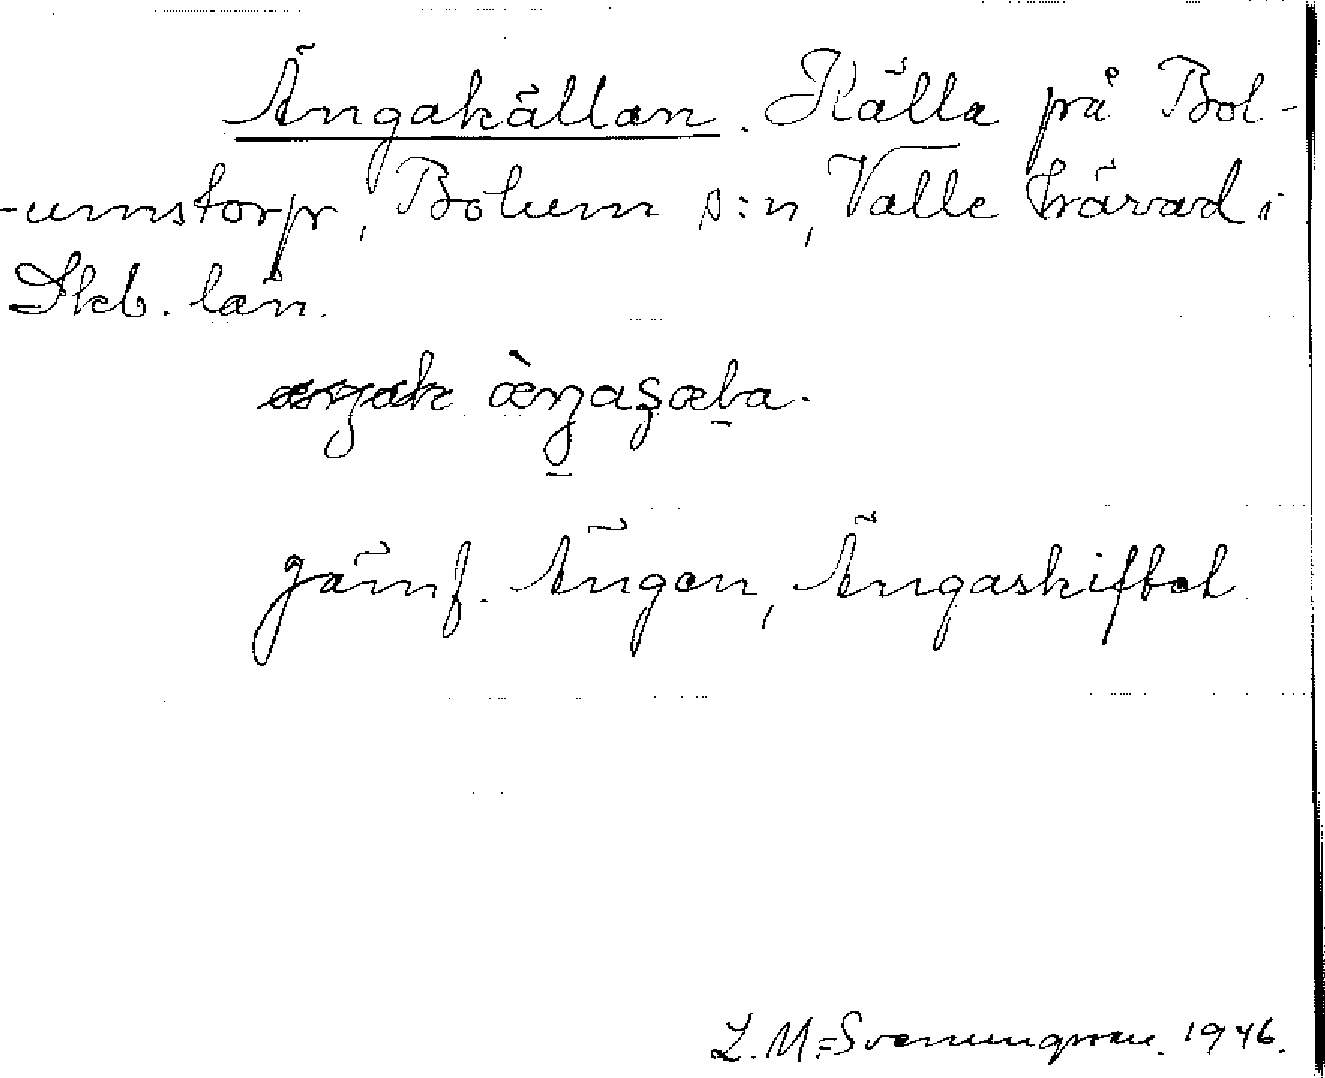 Ängakällan. Källa på Bol-
-umstorp, Bolum s:n, Valle härad i
Skb. län.
æŋaʂæɫa.
Jämf. Ängen, Ängaskiftet
L. M. Svenungsson. 1946.